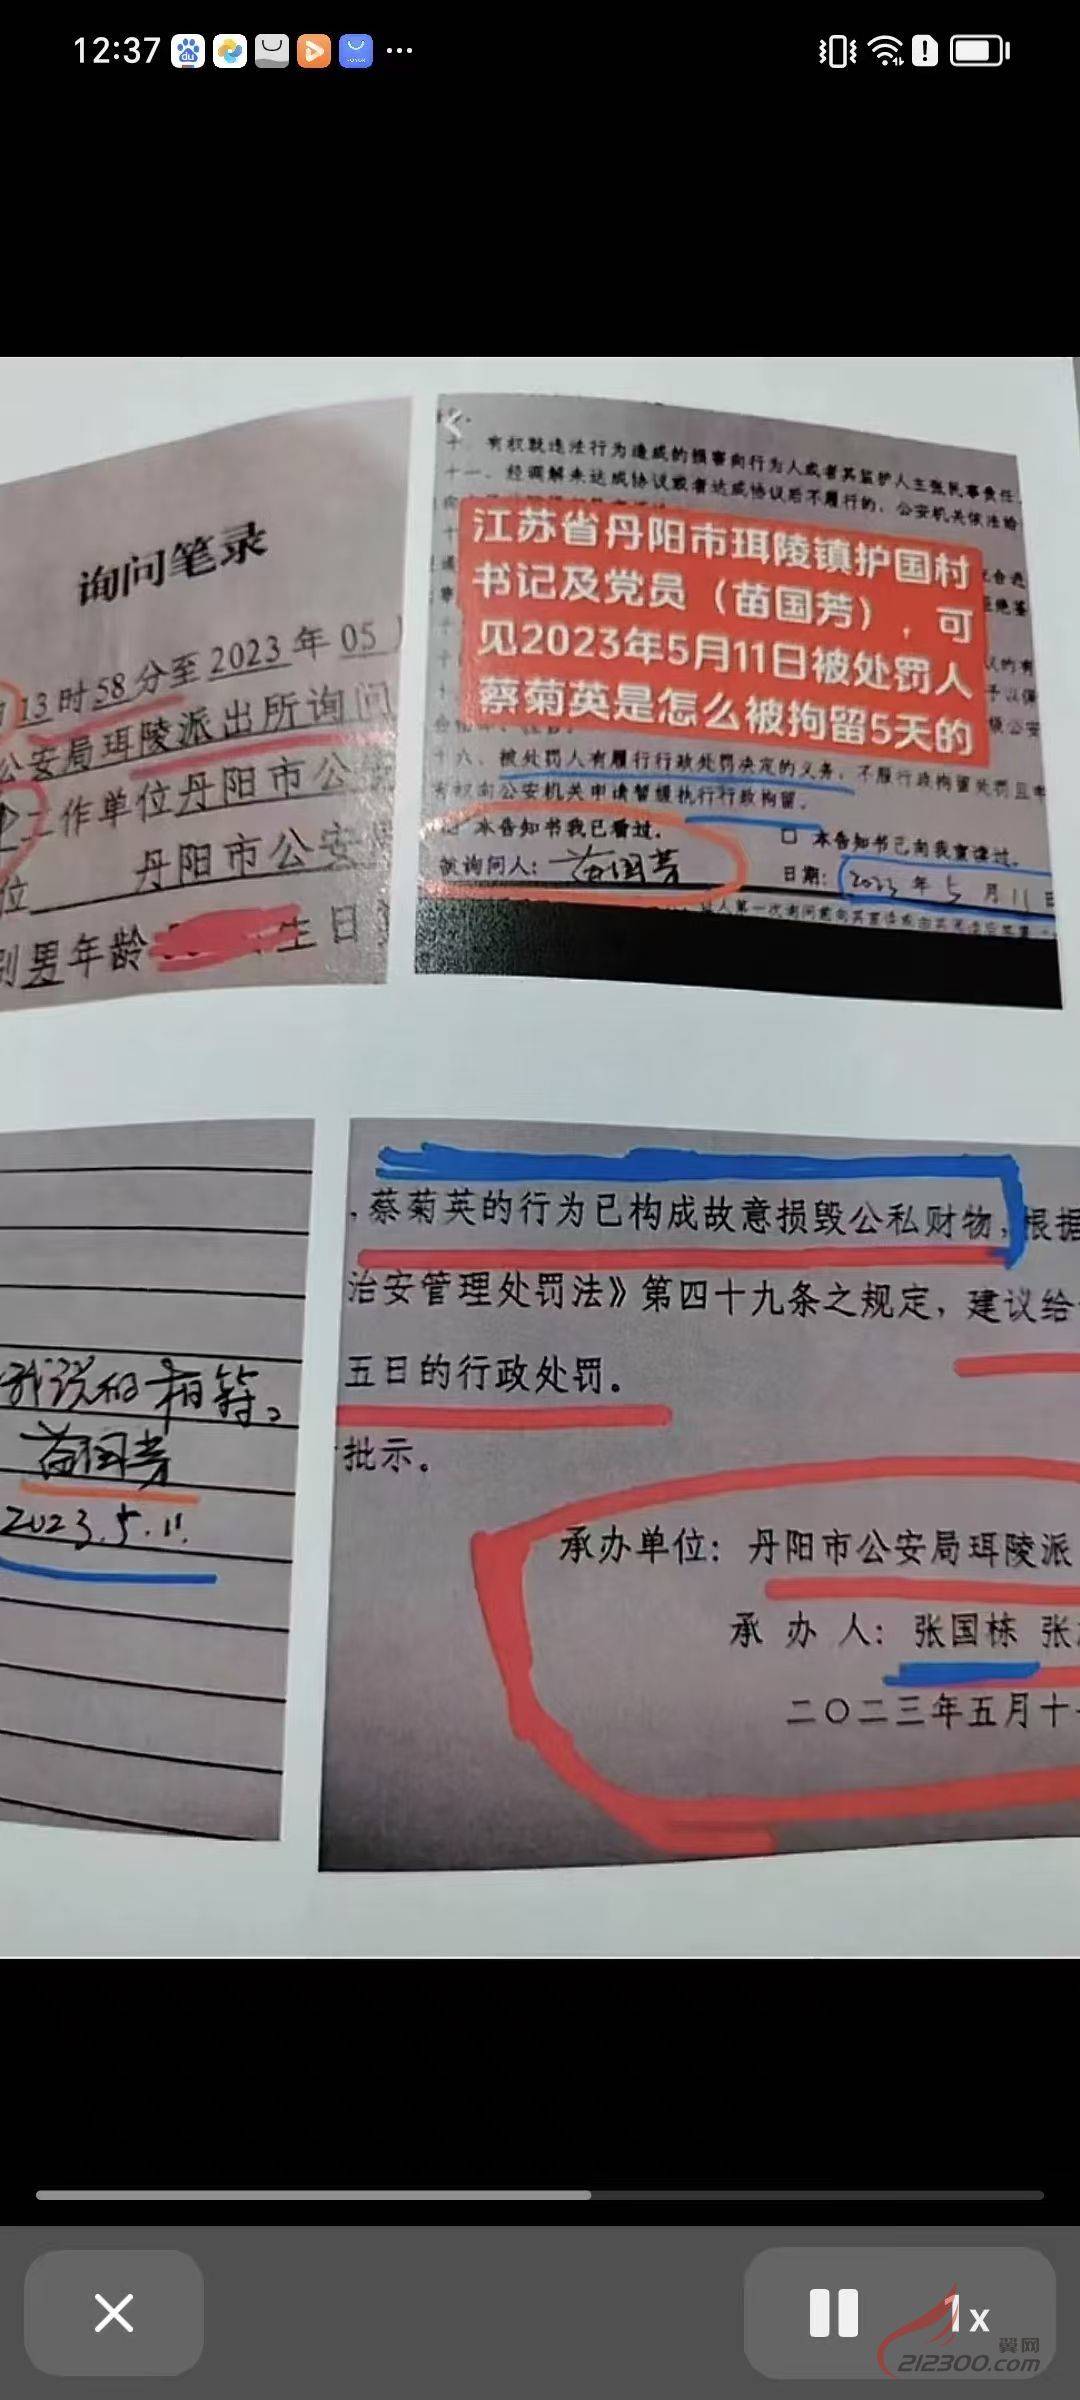 12:37
询问笔录
13时58分至2023年05
公安局珥陵派出所询问
工作单位丹阳市公
位 丹阳市公安
别男年龄 生日
十、有权就违法行为造成的损害向行为人或者其监护人主张民事责任
十一、经调解未达成协议或者达成协议后不履行的，公安机关依法给
江苏省丹阳市珥陵镇护国村
书记及党员（苗国芳），可
见2023年5月11日被处罚人
蔡菊英是怎么被拘留5天的
十六、被处罚人有履行行政处罚决定的义务，不履行政拘留处罚且申
有权向公安机关申请暂缓执行行政拘留。
本告知书我已看过。 □ 本告知书已向我宣读过。
被询问人：苗国芳 日期：2023年5月11日
我说的相符。
苗国芳
2023.5.11.
，蔡菊英的行为已构成故意损毁公私财物，根据
治安管理处罚法》第四十九条之规定，建议给
五日的行政处罚。
批示。
承办单位：丹阳市公安局珥陵派
承 办 人：张国栋 张
二〇二三年五月十
1x
翼网
212300.com